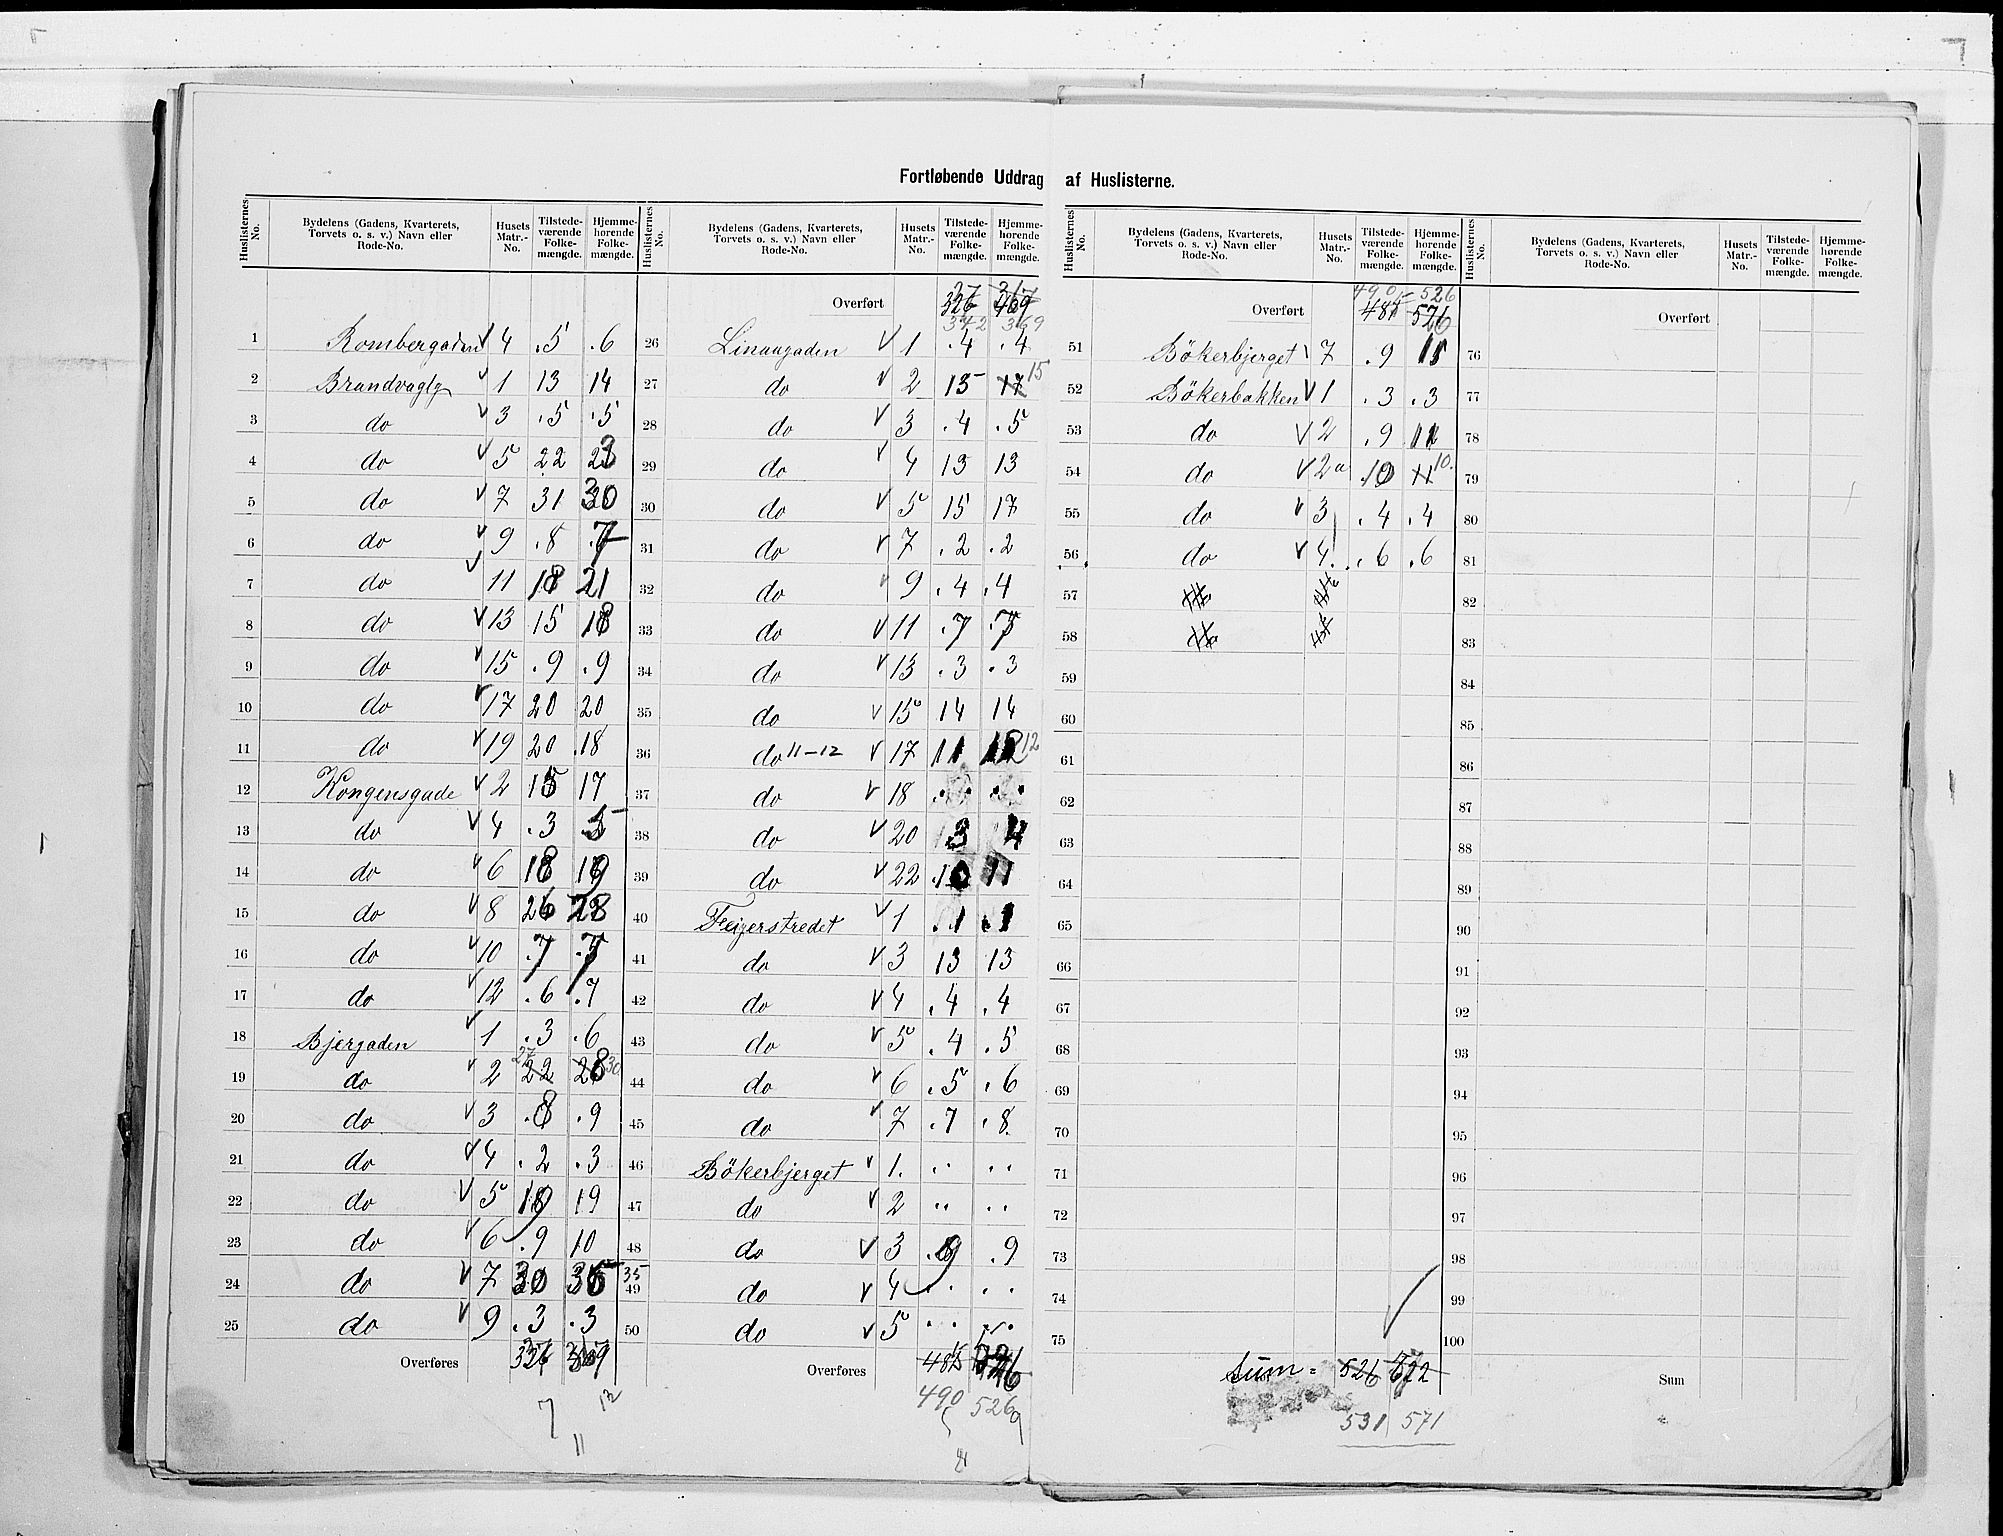 Fortløbende Uddrag af Huslisterne.
Huslisternes No. | Bydelens (Gadens, Kvarterets, Torvets o. s. v.) Navn eller Rode-No. | Husets Matr.-No. | Tilstedeværende Folkemængde. | Hjemmehørende Folkemængde.
1 Rombergaden V 4 .5 .6
2 Brandvagtg V 1 13 14
3 do V 3 .5 .5
4 do V 5 22 23
5 do V 7 31 30
6 do V 9 .8 .7
7 do V 11 18 21
8 do V 13 15 18
9 do V 15 .9 .9
10 do V 17 20 20
11 do V 19 20 .18
12 Kongensgade V 2 15 17
13 do V 4 .3 5
14 do V 6 18 19
15 do V 8 26 28
16 do V 10 .7 .7
17 do V 12 .6 .7
18 Bjergaden V 1 .3 .6
19 do V 2 27 22 28 30
20 do V 3 .8 .9
21 do V 4 .2 .3
22 do V 5 19 19
23 do V 6 .9 10
24 do V 7 30 35 35
25 do V 9 .3 .3
Overføres 369
7 12
11
Huslisternes No. | Bydelens (Gadens, Kvarterets, Torvets o. s. v.) Navn eller Rode-No. | Husets Matr.-No. | Tilstedeværende Folkemængde. | Hjemmehørende Folkemængde.
Overført
342 369
26 Linaagaden V 1 .4 .4
27 do V 2 15 17 15
28 do V 3 .4 .5
29 do V 4 13 13
30 do V 5 15 17
31 do V 7 .2 .2
32 do V 9 .4 .4
33 do V 11 .7 .7
34 do V 13 .3 .3
35 do V 15 14 14
36 do 11-12 V 17 11 12 12
37 do V 18 . . . .
38 do V 20 3 4
39 do V 22 10 11
40 Feijerstredet V 1 .1 .1
41 do V 3 13 13
42 do V 4 .4 .4
43 do V 5 .4 .5
44 do V 6 .5 .6
45 do V 7 .7 .8
46 Bökerbjerget V 1. .. ..
47 do V 2 .. ..
48 do V 3 .9 .9
49 do V 4 . . . .
50 do V 5 .. ..
Overføres 485 526
490 526
Huslisternes No. | Bydelens (Gadens, Kvarterets, Torvets o. s. v.) Navn eller Rode-No. | Husets Matr.-No. | Tilstedeværende Folkemængde. | Hjemmehørende Folkemængde.
490 526
Overført 526
51 Bökerbjerget V 7 .9 11
52 Bökerbakken V 1 .3 .3
53 do V 2 .9 11
54 do V 2a 10 11 10.
55 do V 3 .4 .4
56 do V 4. .6 .6
57 do
58 do
59
60
61
62
63
64
65
66
67
68
69
70
71
72
73
74
75
Sum = 526 572
531 571
Huslisternes No. | Bydelens (Gadens, Kvarterets, Torvets o. s. v.) Navn eller Rode-No. | Husets Matr.-No. | Tilstedeværende Folkemængde. | Hjemmehørende Folkemængde.
Overført
76
77
78
79
80
81
82
83
84
85
86
87
88
89
90
91
92
93
94
95
96
97
98
99
100
Sum